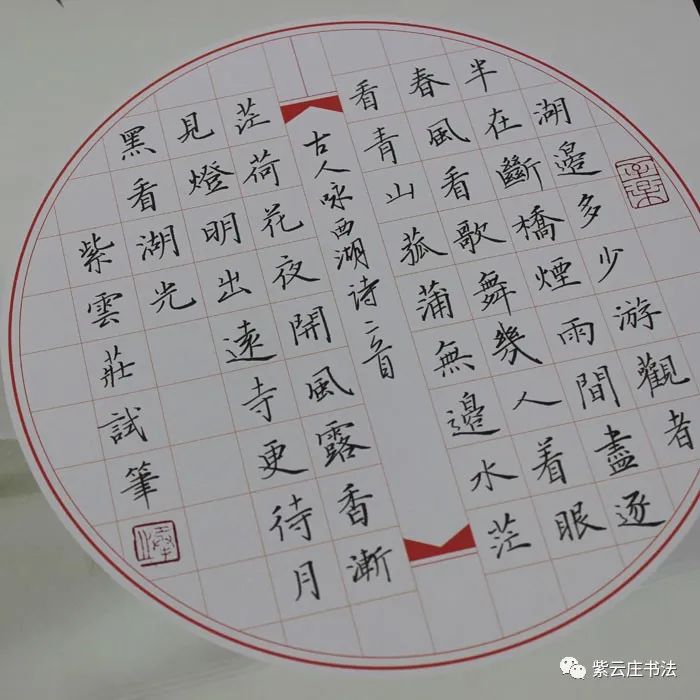 湖邊多少游觀者
半在斷橋煙雨間盡逐
春風看歌舞幾人着眼
看青山菰蒲無邊水茫
古人咏西湖诗二首
茫荷花夜開風露香漸
見燈明出遠寺更待月
黑看湖光
紫雲莊試筆
紫云庄书法